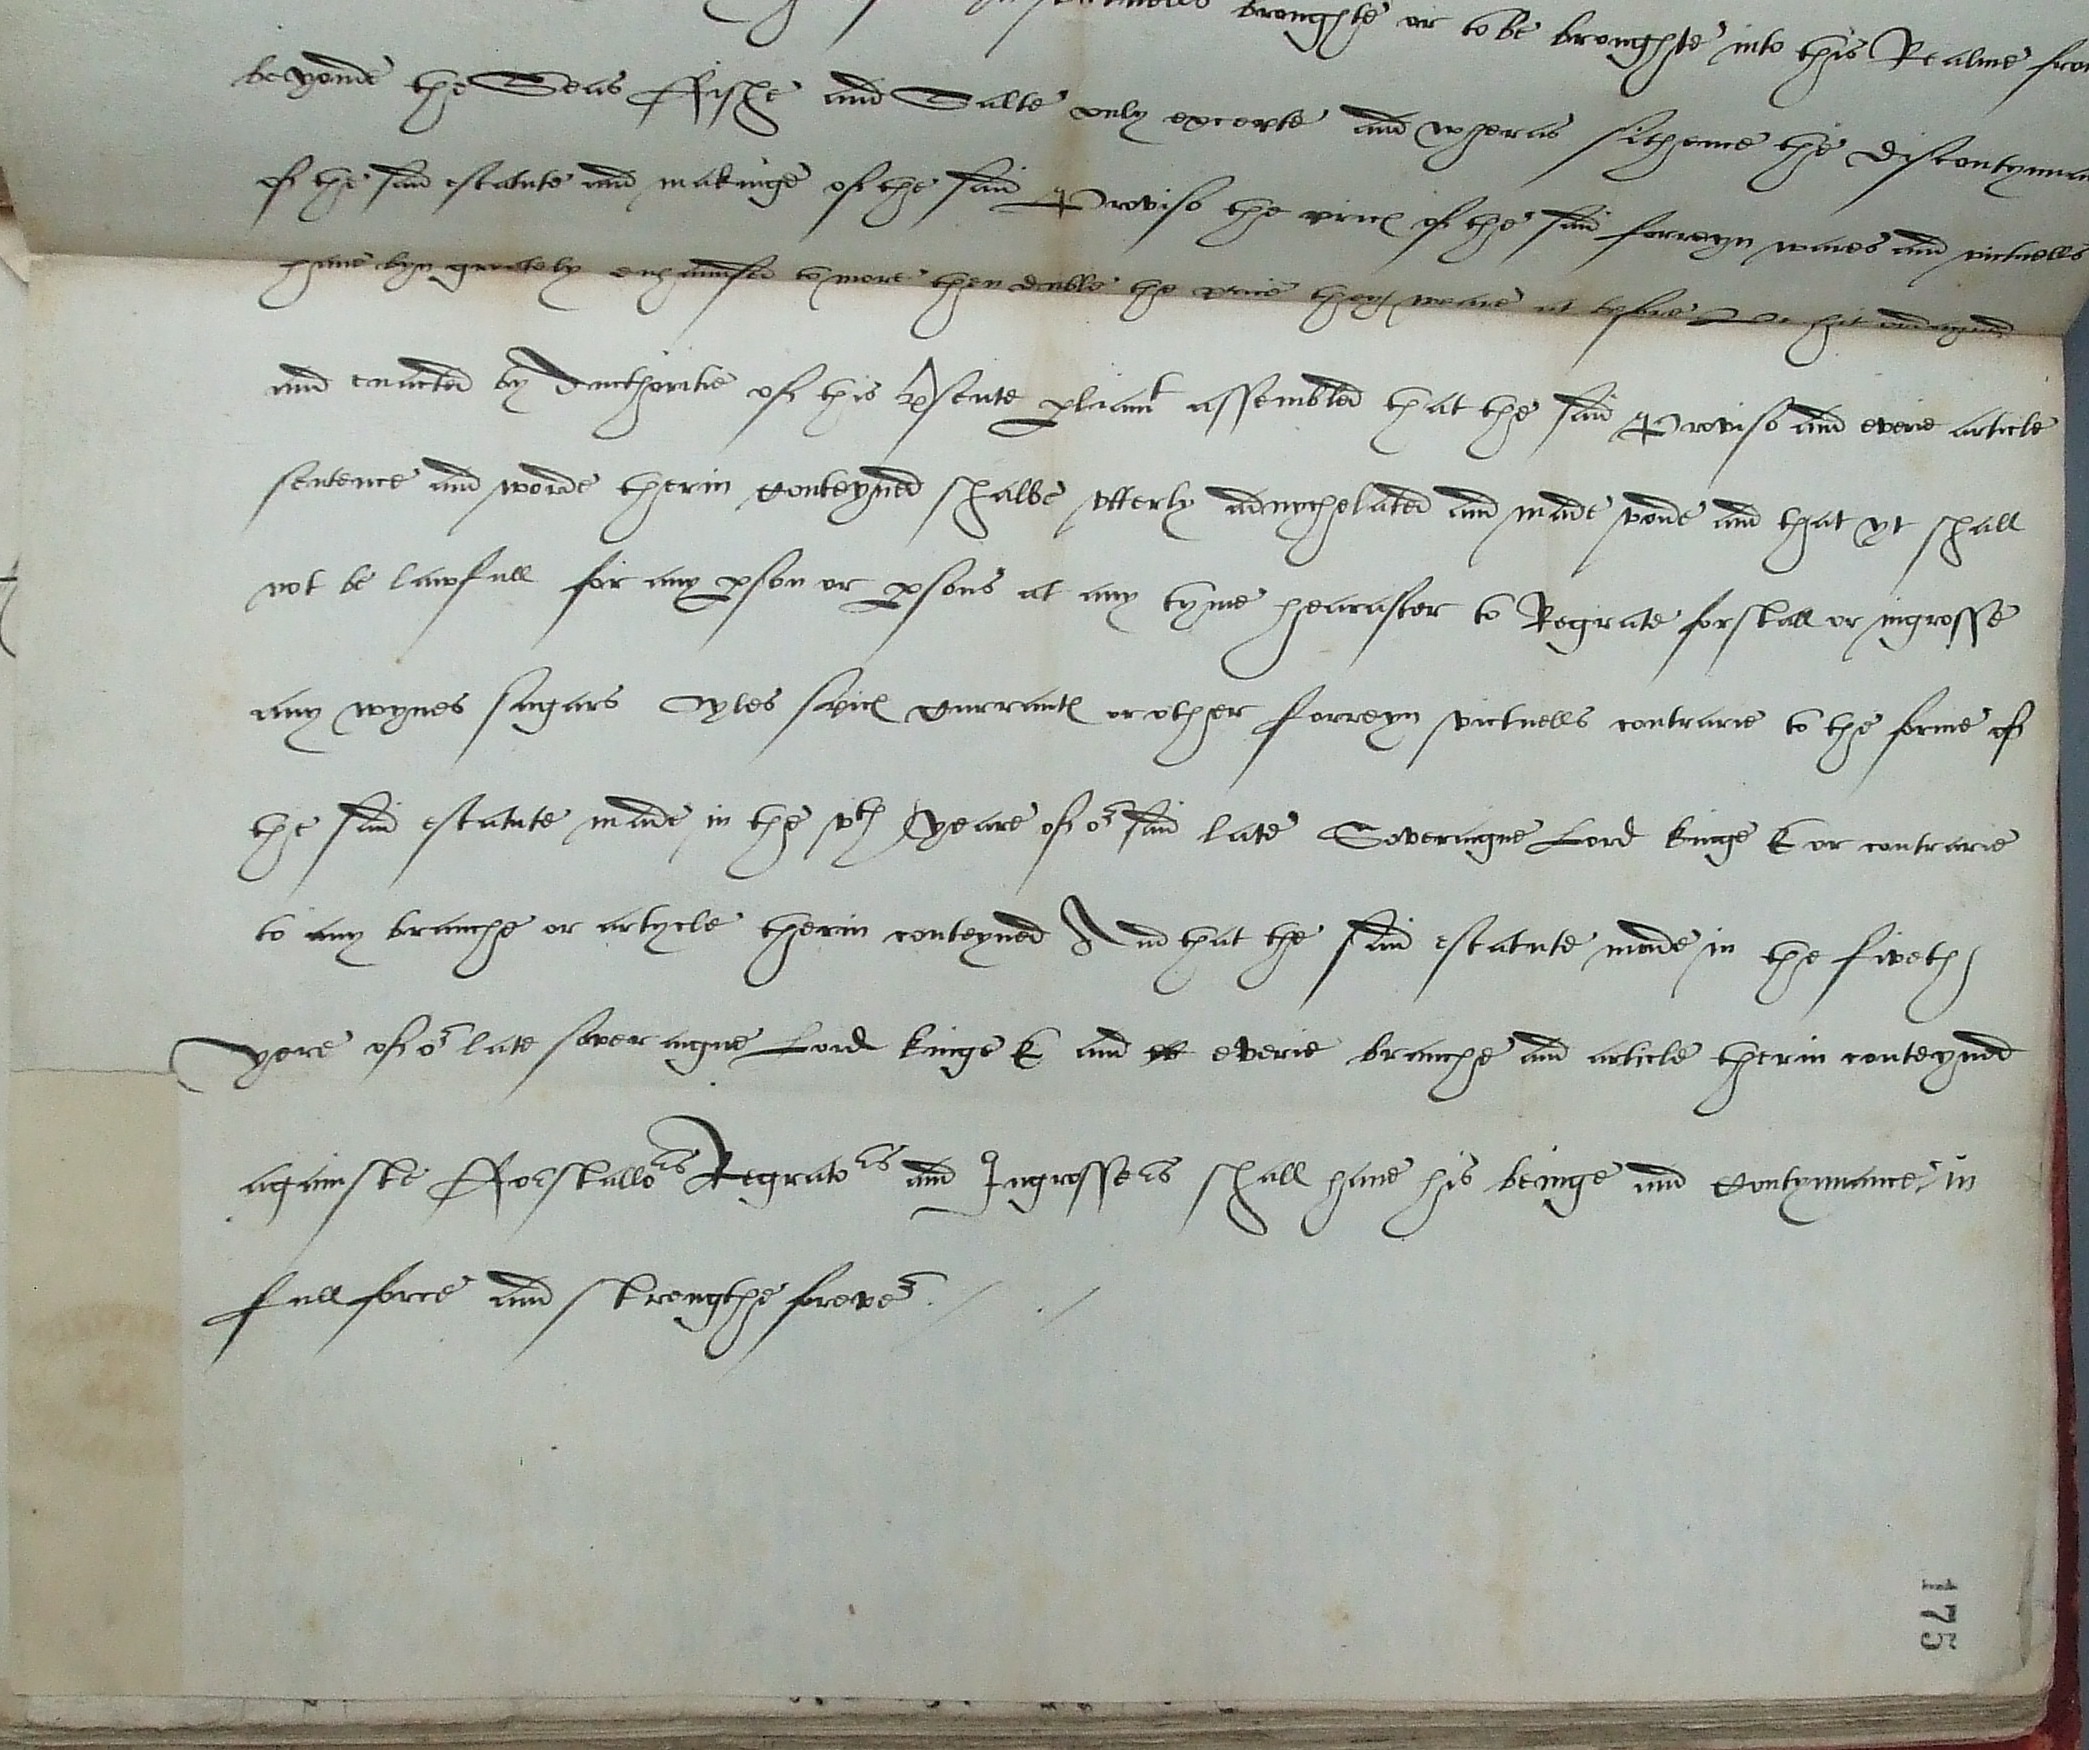 brought or to be broughte into this Realme from
beyonde the Seas Ffishe and Salte only excepte and wheras sithence the discontynuan
of the said estatute and makinge of the said Proviso the prices of the said forreyn wares and victuells
have byn greately enhaunsed to more then duble the price they weare at before Be hit ordeyned
and enacted by Aucthoritie of this psente pliamt assembled that the said Proviso and everie article
sentence and worde therin conteyned shalbe vtterly adnychelated and made voyde and that yt shall
not be lawfull for any pson or psons at any tyme hearafter to Regrate forstall or ingrosse
any wynes sugars Oyles spices Currantes or other forreyn victuells contrarie to the forme of
the said estatute made in the vth yeare of or said late Soveraigne Lord kinge E or contrarie
to any branche or artycle therin conteyned And that the said estatute made in the fiveth
yere of or late soveraigne Lord kinge E and everie branche and article therin conteyned
againste Fforstallors Regrators and Ingrossers shall have his beinge and contynuance in
full force and strengthe forever
175